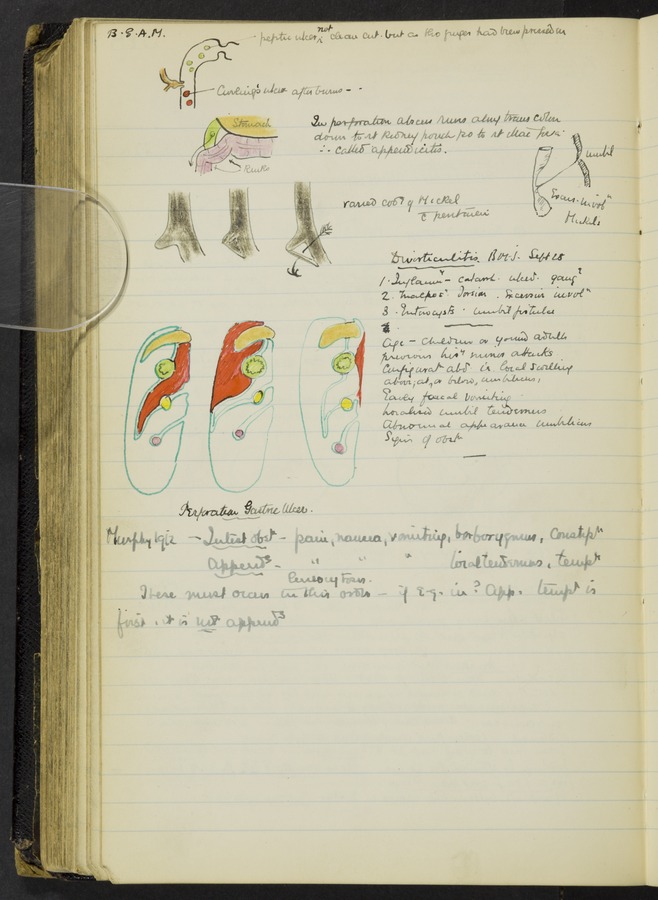 B.E.A.M.
peptic ulcer not clean cut. but as tho finger had been pressed in
Curling's ulcer after burns - -
Stomach
In perforation abscess runs along trans colon
down to rt kidney pouch & so to rt iliac fossa
∴ called appendicitis.
umbil
Meckels
varied coats of Meckel
c peritoneum
Diverticulitis B.M.J. Sept 28
1. Inflamn - catarrh. ulcer. gang
2. torsion. involn
3. Enterocysts. umbil fistulae
Age - children or young adults
previous hisy minor attacks
abd. in local swelling
umbilicus,
Early faecal vomiting.
Localised umbil tenderness
Abnormal appearance umbilicus
Signs of obstn
Perforation Gastric Ulcer.
Murphy 1912 - Intest obstn - pain, nausea, vomiting, borborygmus, constipn
Appends - " " " local tenderness, tempn
Leucocytosis.
These must occur in this order - if e.g. in ? App. tempt is
first, it is not appends